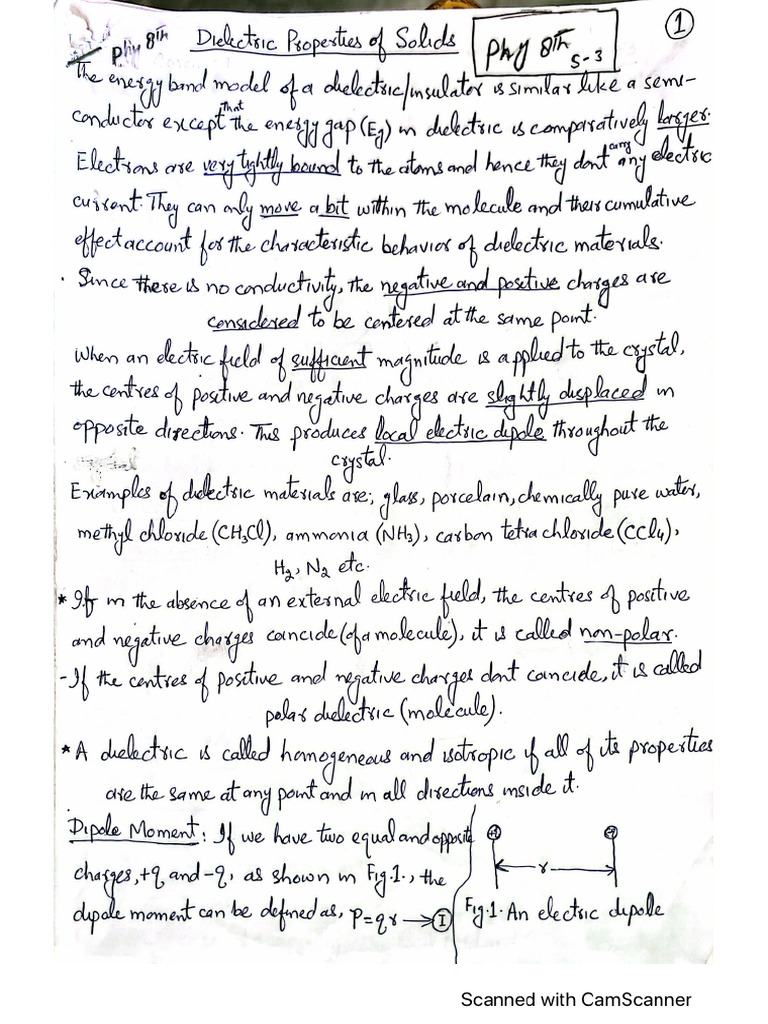 Phy 8th
Dielectric Properties of Solids
Phy 8th
S-3
1
The energy band model of a dielectric/insulator is similar like a semi-
conductor except that the energy gap (Eg) in dielectric is comparatively larger.
Electrons are very tightly bound to the atoms and hence they dont carry any electric
current. They can only move a bit within the molecule and their cumulative
effect account for the characteristic behavior of dielectric materials.
. Since there is no conductivity, the negative and positive charges are
considered to be centered at the same point.
When an electric field of sufficient magnitude is applied to the crystal,
the centres of positive and negative charges are slightly displaced in
opposite directions. This produces local electric dipole throughout the
crystal.
Examples of dielectric materials are; glass, porcelain, chemically pure water,
methyl chloride (CH3Cl), ammonia (NH3), carbon tetra chloride (CCl4),
H2, N2 etc.
* If in the absence of an external electric field, the centres of positive
and negative charges coincide (of a molecule), it is called non-polar.
- If the centres of positive and negative charges dont coincide, it is called
polar dielectric (molecule).
* A dielectric is called homogeneous and isotropic if all of its properties
are the same at any point and in all directions inside it.
Dipole Moment: If we have two equal and opposite
charges, +q and -q, as shown in Fig.1., the
dipole moment can be defined as, P=qr → I
r
Fig.1. An electric dipole
Scanned with CamScanner